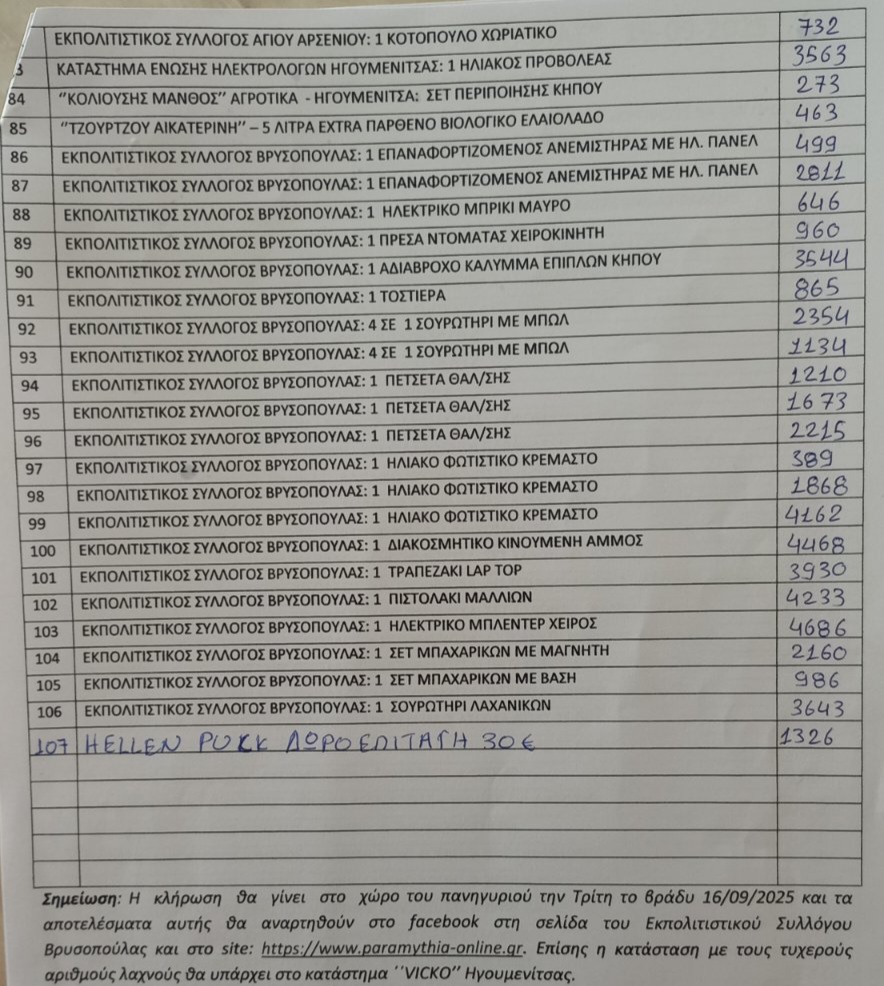 ΕΚΠΟΛΙΤΙΣΤΙΚΟΣ ΣΥΛΛΟΓΟΣ ΑΓΙΟΥ ΑΡΣΕΝΙΟΥ: 1 ΚΟΤΟΠΟΥΛΟ ΧΩΡΙΑΤΙΚΟ 732
3 ΚΑΤΑΣΤΗΜΑ ΕΝΩΣΗΣ ΗΛΕΚΤΡΟΛΟΓΩΝ ΗΓΟΥΜΕΝΙΤΣΑΣ: 1 ΗΛΙΑΚΟΣ ΠΡΟΒΟΛΕΑΣ 3563
84 ‘’ΚΟΛΙΟΥΣΗΣ ΜΑΝΘΟΣ’’ ΑΓΡΟΤΙΚΑ - ΗΓΟΥΜΕΝΙΤΣΑ: ΣΕΤ ΠΕΡΙΠΟΙΗΣΗΣ ΚΗΠΟΥ 273
85 ‘’ΤΖΟΥΡΤΖΟΥ ΑΙΚΑΤΕΡΙΝΗ’’ – 5 ΛΙΤΡΑ EXTRA ΠΑΡΘΕΝΟ ΒΙΟΛΟΓΙΚΟ ΕΛΑΙΟΛΑΔΟ 463
86 ΕΚΠΟΛΙΤΙΣΤΙΚΟΣ ΣΥΛΛΟΓΟΣ ΒΡΥΣΟΠΟΥΛΑΣ: 1 ΕΠΑΝΑΦΟΡΤΙΖΟΜΕΝΟΣ ΑΝΕΜΙΣΤΗΡΑΣ ΜΕ ΗΛ. ΠΑΝΕΛ 499
87 ΕΚΠΟΛΙΤΙΣΤΙΚΟΣ ΣΥΛΛΟΓΟΣ ΒΡΥΣΟΠΟΥΛΑΣ: 1 ΕΠΑΝΑΦΟΡΤΙΖΟΜΕΝΟΣ ΑΝΕΜΙΣΤΗΡΑΣ ΜΕ ΗΛ. ΠΑΝΕΛ 2811
88 ΕΚΠΟΛΙΤΙΣΤΙΚΟΣ ΣΥΛΛΟΓΟΣ ΒΡΥΣΟΠΟΥΛΑΣ: 1 ΗΛΕΚΤΡΙΚΟ ΜΠΡΙΚΙ ΜΑΥΡΟ 646
89 ΕΚΠΟΛΙΤΙΣΤΙΚΟΣ ΣΥΛΛΟΓΟΣ ΒΡΥΣΟΠΟΥΛΑΣ: 1 ΠΡΕΣΑ ΝΤΟΜΑΤΑΣ ΧΕΙΡΟΚΙΝΗΤΗ 960
90 ΕΚΠΟΛΙΤΙΣΤΙΚΟΣ ΣΥΛΛΟΓΟΣ ΒΡΥΣΟΠΟΥΛΑΣ: 1 ΑΔΙΑΒΡΟΧΟ ΚΑΛΥΜΜΑ ΕΠΙΠΛΩΝ ΚΗΠΟΥ 3544
91 ΕΚΠΟΛΙΤΙΣΤΙΚΟΣ ΣΥΛΛΟΓΟΣ ΒΡΥΣΟΠΟΥΛΑΣ: 1 ΤΟΣΤΙΕΡΑ 865
92 ΕΚΠΟΛΙΤΙΣΤΙΚΟΣ ΣΥΛΛΟΓΟΣ ΒΡΥΣΟΠΟΥΛΑΣ: 4 ΣΕ 1 ΣΟΥΡΩΤΗΡΙ ΜΕ ΜΠΩΛ 2354
93 ΕΚΠΟΛΙΤΙΣΤΙΚΟΣ ΣΥΛΛΟΓΟΣ ΒΡΥΣΟΠΟΥΛΑΣ: 4 ΣΕ 1 ΣΟΥΡΩΤΗΡΙ ΜΕ ΜΠΩΛ 1134
94 ΕΚΠΟΛΙΤΙΣΤΙΚΟΣ ΣΥΛΛΟΓΟΣ ΒΡΥΣΟΠΟΥΛΑΣ: 1 ΠΕΤΣΕΤΑ ΘΑΛ/ΣΗΣ 1210
95 ΕΚΠΟΛΙΤΙΣΤΙΚΟΣ ΣΥΛΛΟΓΟΣ ΒΡΥΣΟΠΟΥΛΑΣ: 1 ΠΕΤΣΕΤΑ ΘΑΛ/ΣΗΣ 1673
96 ΕΚΠΟΛΙΤΙΣΤΙΚΟΣ ΣΥΛΛΟΓΟΣ ΒΡΥΣΟΠΟΥΛΑΣ: 1 ΠΕΤΣΕΤΑ ΘΑΛ/ΣΗΣ 2215
97 ΕΚΠΟΛΙΤΙΣΤΙΚΟΣ ΣΥΛΛΟΓΟΣ ΒΡΥΣΟΠΟΥΛΑΣ: 1 ΗΛΙΑΚΟ ΦΩΤΙΣΤΙΚΟ ΚΡΕΜΑΣΤΟ 389
98 ΕΚΠΟΛΙΤΙΣΤΙΚΟΣ ΣΥΛΛΟΓΟΣ ΒΡΥΣΟΠΟΥΛΑΣ: 1 ΗΛΙΑΚΟ ΦΩΤΙΣΤΙΚΟ ΚΡΕΜΑΣΤΟ 1868
99 ΕΚΠΟΛΙΤΙΣΤΙΚΟΣ ΣΥΛΛΟΓΟΣ ΒΡΥΣΟΠΟΥΛΑΣ: 1 ΗΛΙΑΚΟ ΦΩΤΙΣΤΙΚΟ ΚΡΕΜΑΣΤΟ 4162
100 ΕΚΠΟΛΙΤΙΣΤΙΚΟΣ ΣΥΛΛΟΓΟΣ ΒΡΥΣΟΠΟΥΛΑΣ: 1 ΔΙΑΚΟΣΜΗΤΙΚΟ ΚΙΝΟΥΜΕΝΗ ΑΜΜΟΣ 4468
101 ΕΚΠΟΛΙΤΙΣΤΙΚΟΣ ΣΥΛΛΟΓΟΣ ΒΡΥΣΟΠΟΥΛΑΣ: 1 ΤΡΑΠΕΖΑΚΙ LAP TOP 3930
102 ΕΚΠΟΛΙΤΙΣΤΙΚΟΣ ΣΥΛΛΟΓΟΣ ΒΡΥΣΟΠΟΥΛΑΣ: 1 ΠΙΣΤΟΛΑΚΙ ΜΑΛΛΙΩΝ 4233
103 ΕΚΠΟΛΙΤΙΣΤΙΚΟΣ ΣΥΛΛΟΓΟΣ ΒΡΥΣΟΠΟΥΛΑΣ: 1 ΗΛΕΚΤΡΙΚΟ ΜΠΛΕΝΤΕΡ ΧΕΙΡΟΣ 4686
104 ΕΚΠΟΛΙΤΙΣΤΙΚΟΣ ΣΥΛΛΟΓΟΣ ΒΡΥΣΟΠΟΥΛΑΣ: 1 ΣΕΤ ΜΠΑΧΑΡΙΚΩΝ ΜΕ ΜΑΓΝΗΤΗ 2160
105 ΕΚΠΟΛΙΤΙΣΤΙΚΟΣ ΣΥΛΛΟΓΟΣ ΒΡΥΣΟΠΟΥΛΑΣ: 1 ΣΕΤ ΜΠΑΧΑΡΙΚΩΝ ΜΕ ΒΑΣΗ 986
106 ΕΚΠΟΛΙΤΙΣΤΙΚΟΣ ΣΥΛΛΟΓΟΣ ΒΡΥΣΟΠΟΥΛΑΣ: 1 ΣΟΥΡΩΤΗΡΙ ΛΑΧΑΝΙΚΩΝ 3643
107 HELLEN ΔΩΡΟΕΠΙΤΑΓΗ 30€ 1326
Σημείωση: Η κλήρωση θα γίνει στο χώρο του πανηγυριού την Τρίτη το βράδυ 16/09/2025 και τα
αποτελέσματα αυτής θα αναρτηθούν στο facebook στη σελίδα του Εκπολιτιστικού Συλλόγου
Βρυσοπούλας και στο site: https://www.paramythia-online.gr. Επίσης η κατάσταση με τους τυχερούς
αριθμούς λαχνούς θα υπάρχει στο κατάστημα ‘’VICKO’’ Ηγουμενίτσας.